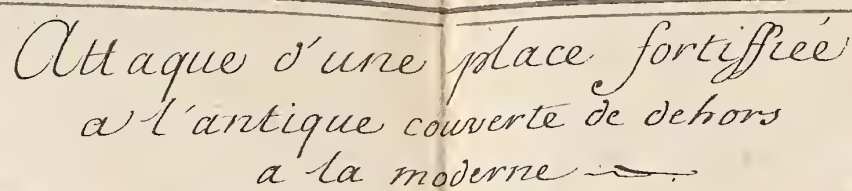 Attaque d'une place fortiffieé
a l'antique couverte de dehors
a la moderne